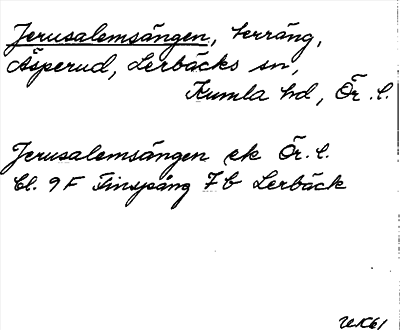 Jerusalemsängen, terräng,
Åsperud, Lerbäcks sn,
Kumla hd, Ör. l.
Jerusalemsängen ek Ör. l.
Bl. 9 F Finspång 7 b Lerbäck
UK61